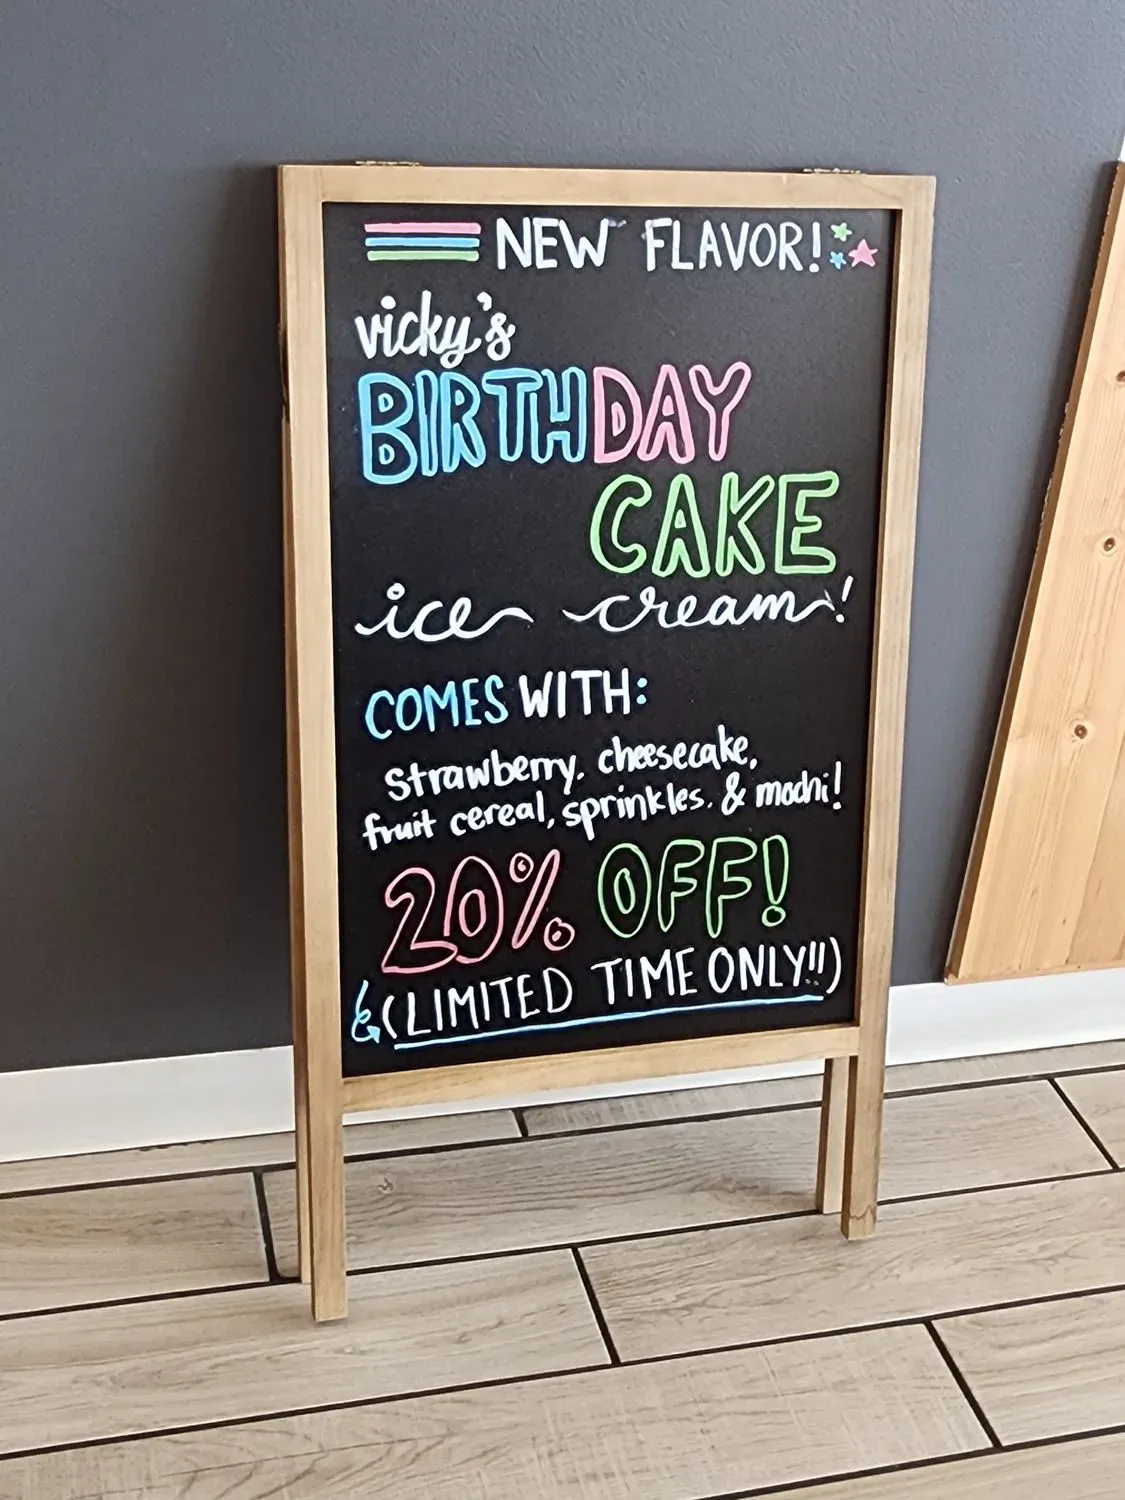 NEW FLAVOR!
vicky's
BIRTHDAY
CAKE
ice cream!
COMES WITH:
strawberry, cheesecake,
fruit cereal, sprinkles, & mochi!
20% OFF!
(LIMITED TIME ONLY!!)